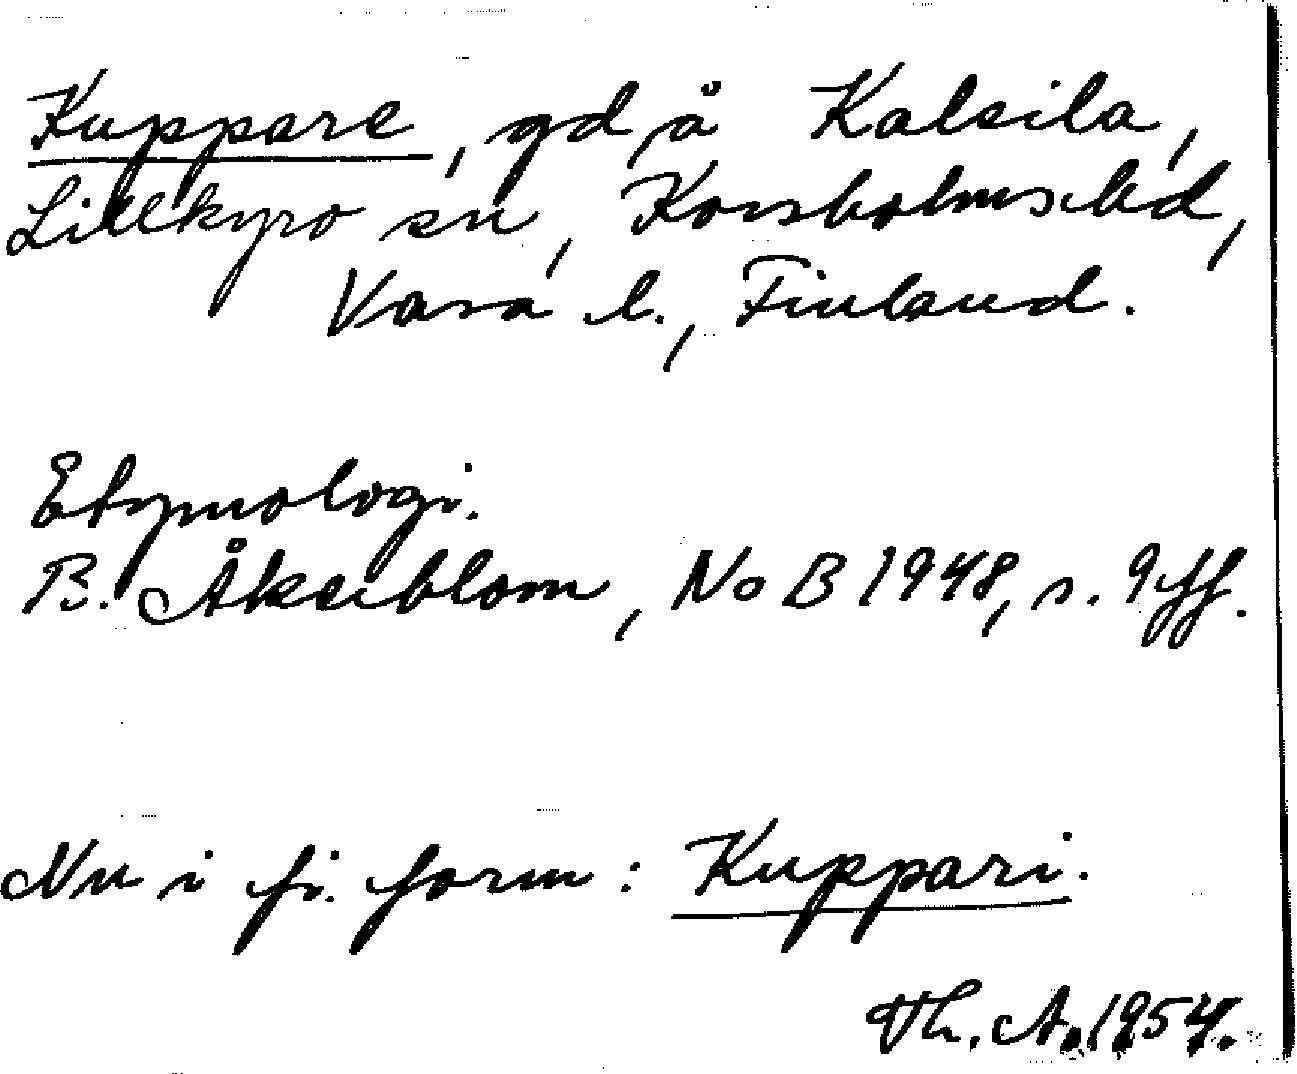 Kuppare, gd å Kalsila,
Lillkyro sn, Korsholms hd,
Vasa l., Finland.
Etymologi.
B. Åkerblom, NoB 1948, s. 9ff.
Nu i fi. form: Kuppari.
Th. A. 1954.